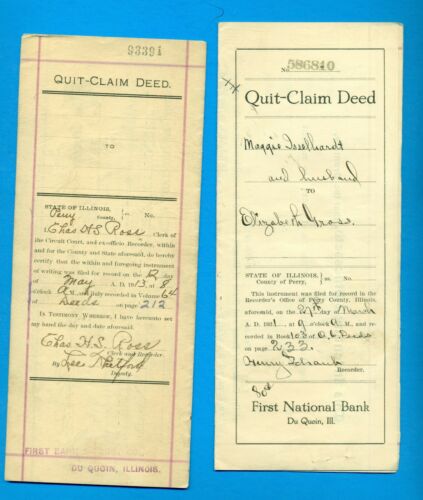 93391
QUIT-CLAIM DEED.
TO
STATE OF ILLINOIS,
Perry County, ss. No.
Chas H.S. Ross Clerk of
the Circuit Court, and ex-officio Recorder, within
and for the County and State aforesaid, do hereby
certify that the within and foregoing instrument
of writing was filed for record on the 2 day
of May A. D. 1913, at 8
o'clock A M., and duly recorded in Volume 64
of Deeds on page 212
IN TESTIMONY WHEREOF, I have hereunto set
my hand the day and date aforesaid.
Chas H.S. Ross
Clerk and Recorder.
By Lee
Deputy.
FIRST
DU QUOIN, ILLINOIS.
No. 586840
Quit-Claim Deed
Maggie Isselhardt
and husband
TO
Elizabeth Gross.
STATE OF ILLINOIS, ss. No.
County of Perry,
This instrument was filed for record in the
Recorder's Office of Perry County, Illinois,
aforesaid, on the 27th day of March
A. D. 191 , at 9 o'clock A M., and re-
corded in Book 103 of Deeds
on page 233.
Henry Schrank
Recorder.
80¢
First National Bank
DU QUOIN, ILL.